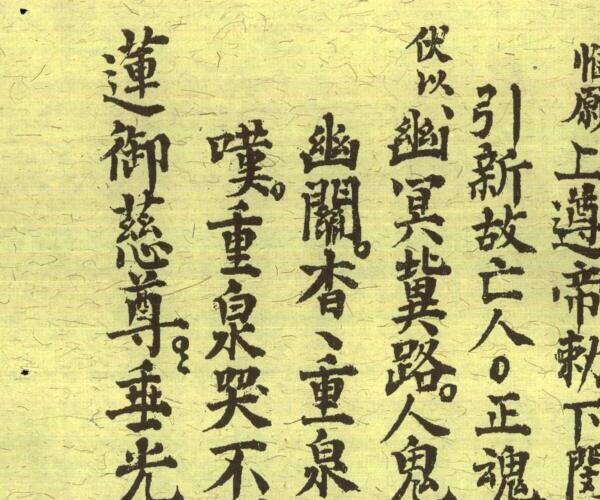 惟願上遵帝勅下
引新故亡人○正魂
伏以、幽冥異路。人鬼
幽關。杳、重泉
嘆。重泉哭不
蓮御慈尊。垂光